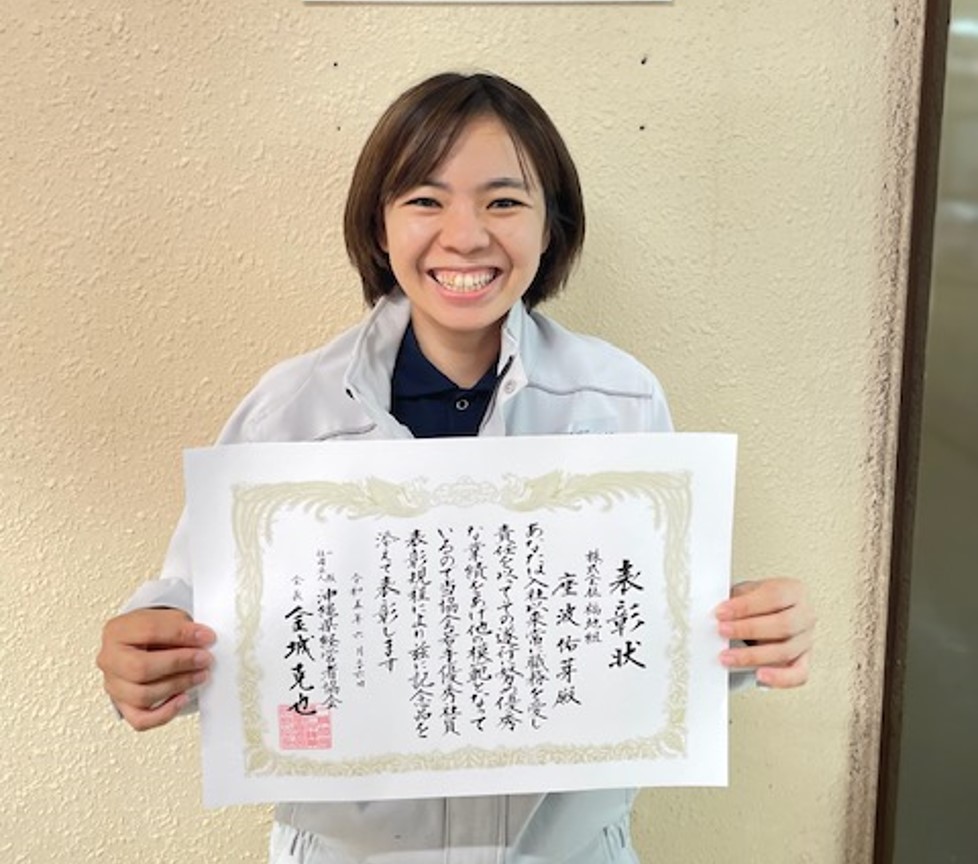 表彰状
株式会社 福地組
座波 佑芽 殿
あなたは入社以来常に職務を愛し
責任を以てその遂行に努め優秀
な業績をあげ他の模範となって
いるので当協会若年優秀社員
表彰規程により茲に記念品を
添えて表彰します
令和五年 六月
一般社団法人 沖縄県経営者協会
会長 金城 克也